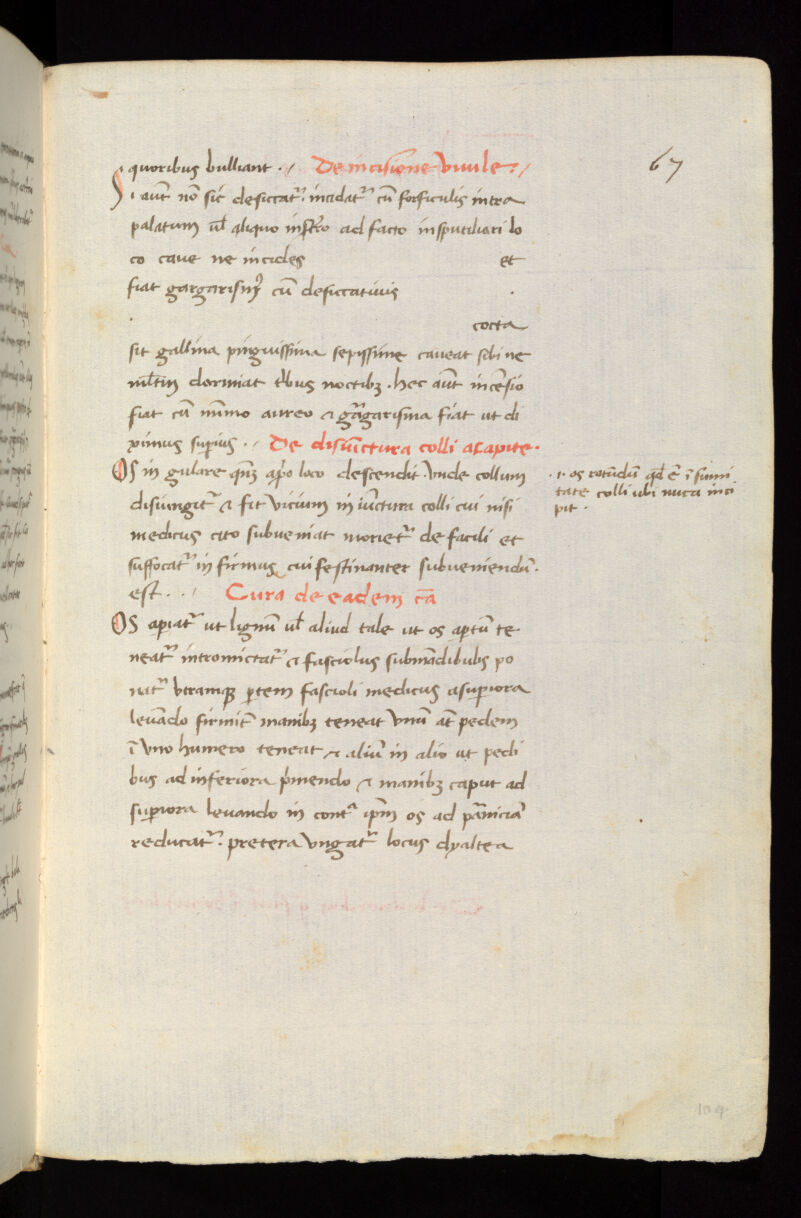 67
quoribus bulliant · De incisione Vuule
Si aut̄ nō sic desiccat᷑ incidat᷑ cū forficulis intra
palatum ul̄ aliquo insťro ad facto insputiliori lo
co cave ne incides et
fiat gargarismꝰ cū desiccativis
cocta
sit gallina pinguissima sepissime caveat sibi ne
ml̄tm̄ dormiat t̓bus noctibꝫ · hec aut̄ incēsio
fiat cū nūmo aureo ⁊ gārgarisma fiat ut di
ximus superius · De disiūctura colli a capite ·
OS in gulare qn̄ꝫ a p̄o loco descendit Vnde collum
disiungit᷑ ⁊ fit vicium in iūctura colli cui nisi
medicus cito subveniat moriet᷑ de facili et
suffocat᷑ in firmus cui festinanter subveniendū ·
est · · Cura de eadem cā
OS apiat᷑ ut lignū ul̄ aliud tale ut os aptū te
neat᷑ intromictat᷑ ⁊ fasciolus submādibulis po
nat᷑ Vtramqꝫ ꝑtem fascioli medicus a supiora
levādo firmit̄ manibꝫ teneat Vnū at̄ pedem
ī Vno humero teneat ⁊ aliū in alio ut pedi
bus ad inferiora p̓mendo ⁊ manibꝫ caput ad
supiora levando in cont᷑ ip̄m os ad p̄āmiciā
reducat᷑ · preterea Vngat᷑ locus dyaltea
· i · os rotūdū qd̄ ē ī sumi
tate colli ubi nuca inci
pit ·
104